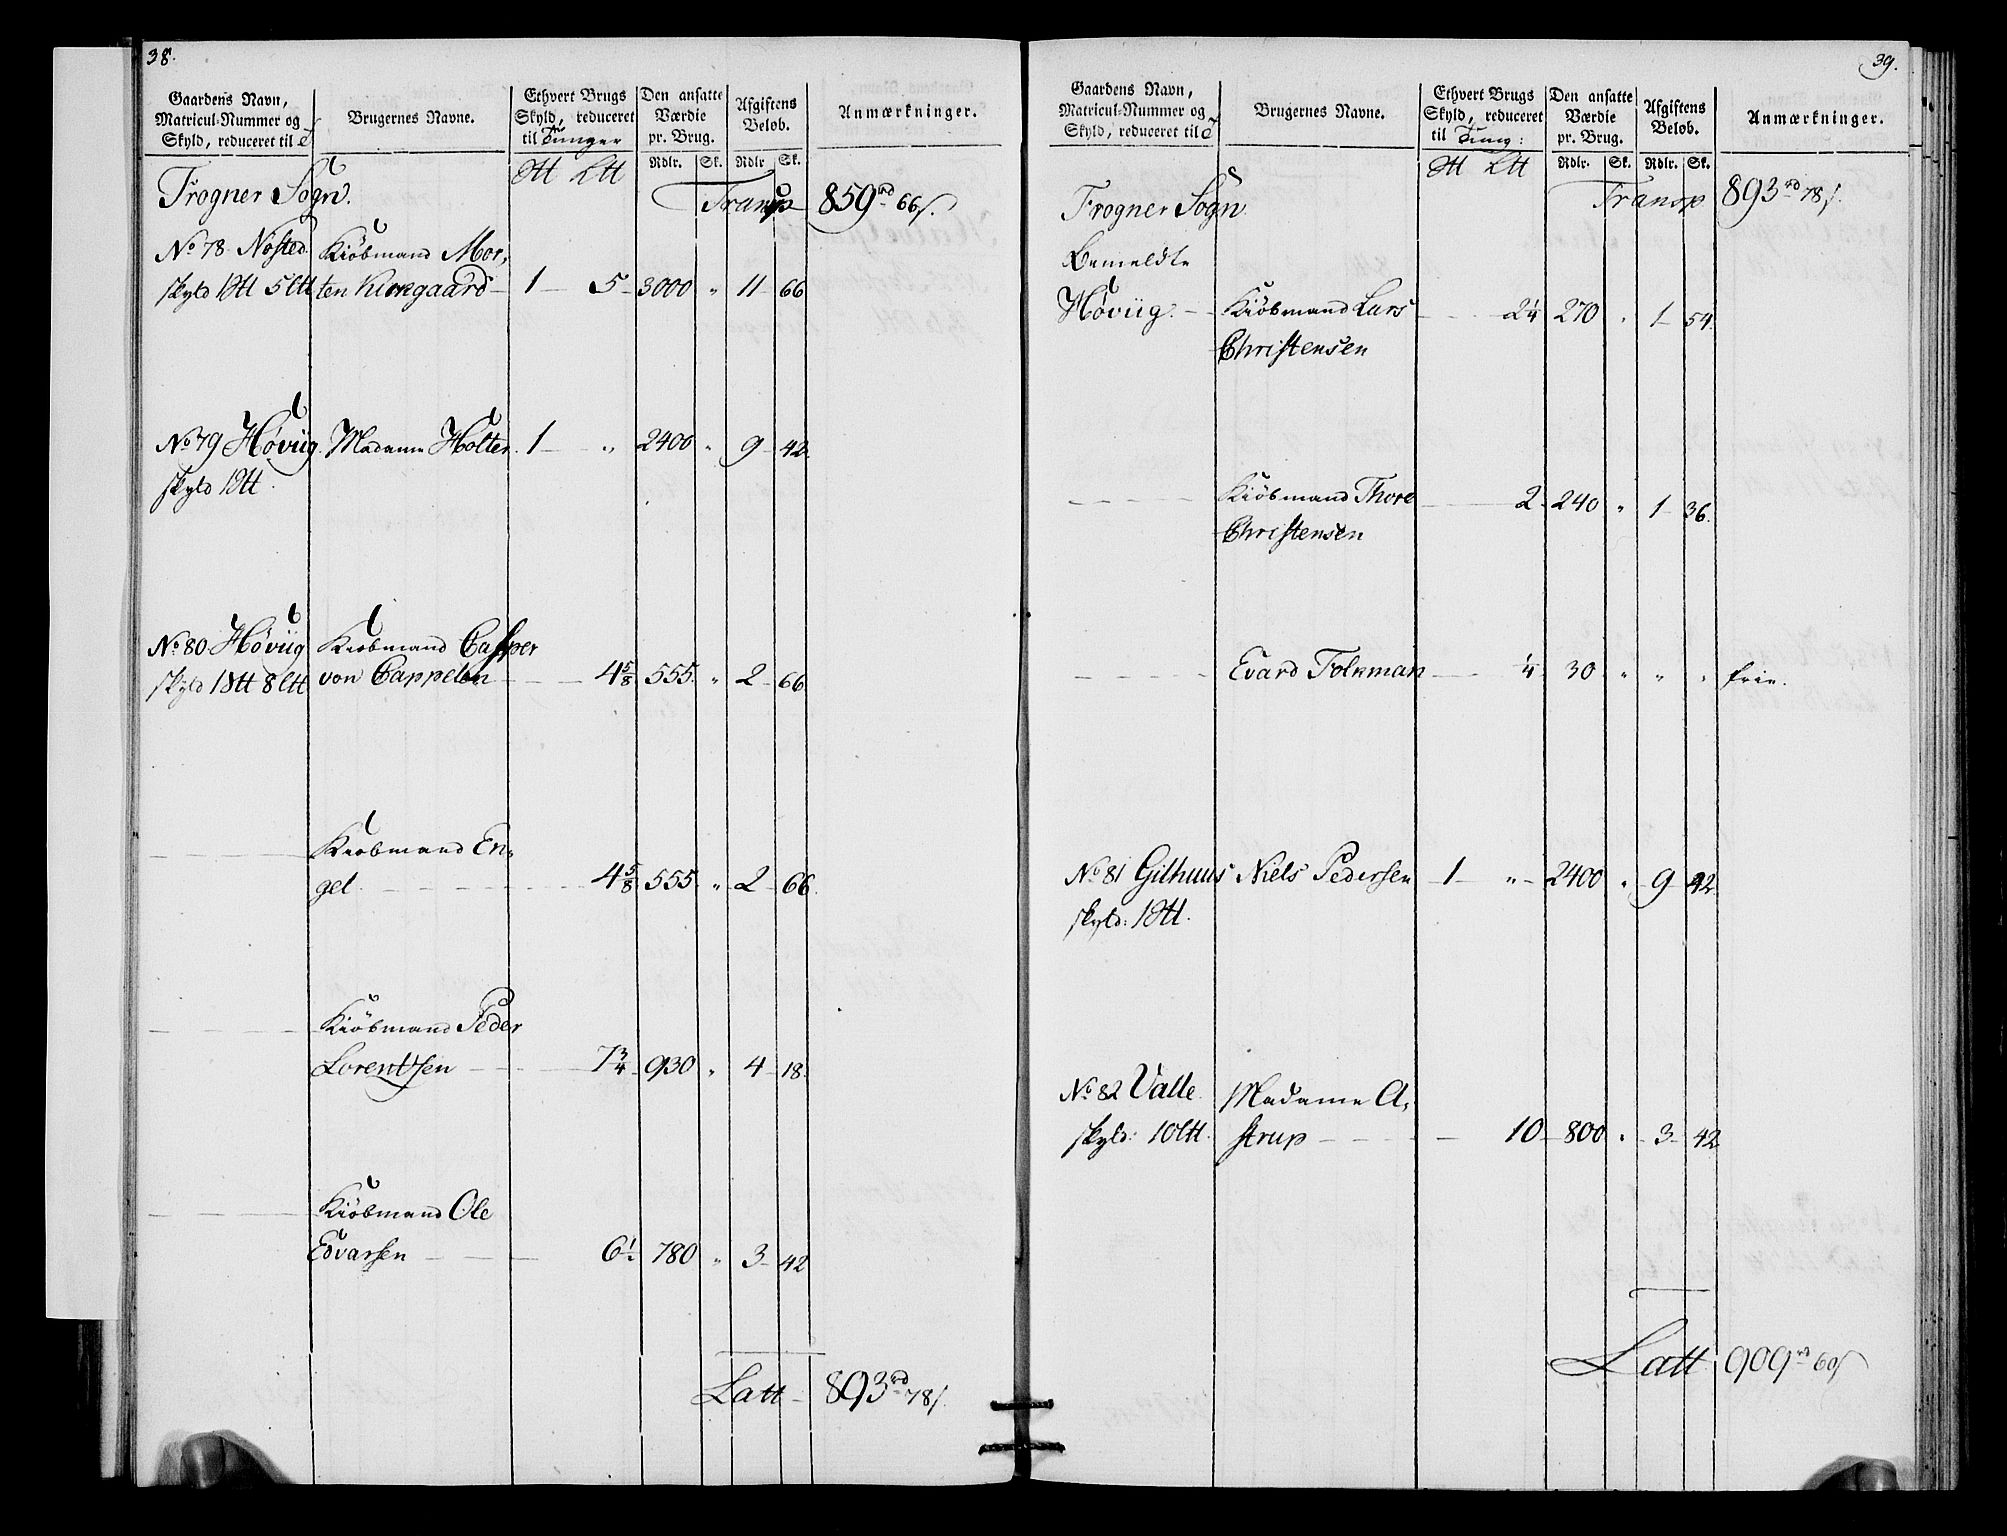 38.
Gaardens Navn, Matricul-Nummer og Skyld, reduceret til
Brugernes Navne.
Ethvert Brugs Skyld, reduceret til Tunger
Den ansatte Værdie pr. Brug.
Afgiftens Beløb.
Anmærkninger.
Rdlr. Sk. Rdlr Sk.
Frogner Sogn.
Transp 859 rd 66 s.
No 78 Nøsted Kiöbmand Mor-
skyld 1 5 ten Kirkgaard 1 5 3000 " 11 66
No 79 Høvüg Madame Holter 1 " 2400 " 9 42
skyld 1
No 80 Høvüg Kiöbmand Casper
skyld 1 8 von Cappelen 4 5/8 555 " 2 66
Kiöbmand En-
gel 4 5/8 555 " 2 66
Kiöbmand Peder
Lorentsen 7 3/4 930 " 4 18
Kiöbmand Ole
Edvarsen 6 1/2 780 " 3 42
Latt 893 rd 78 s.
39.
Gaardens Navn, Matricul-Nummer og Skyld, reduceret til
Brugernes Navne.
Ethvert Brugs Skyld, reduceret til Tung:
Den ansatte Værdie pr. Brug.
Afgiftens Beløb.
Anmærkninger.
Rdlr. Sk. Rdlr. Sk.
Frogner Sogn
Transp 893 rd 78 s.
Bemeldte
Høvüg Kiöbmand Lars 2 1/4 270 " 1 54
Christensen
Kiöbmand Thore 2 240 " 1 36
Christensen
Evard Folkman 1/4 30 " " " frie.
No 81 Gilhuus Niels Pedersen 1 " 2400 " 9 42
skyld: 1
No 82 Valle Madame A-
skyld: 10 strup 10 800 " 3 42
Latt 909 rd 60 s